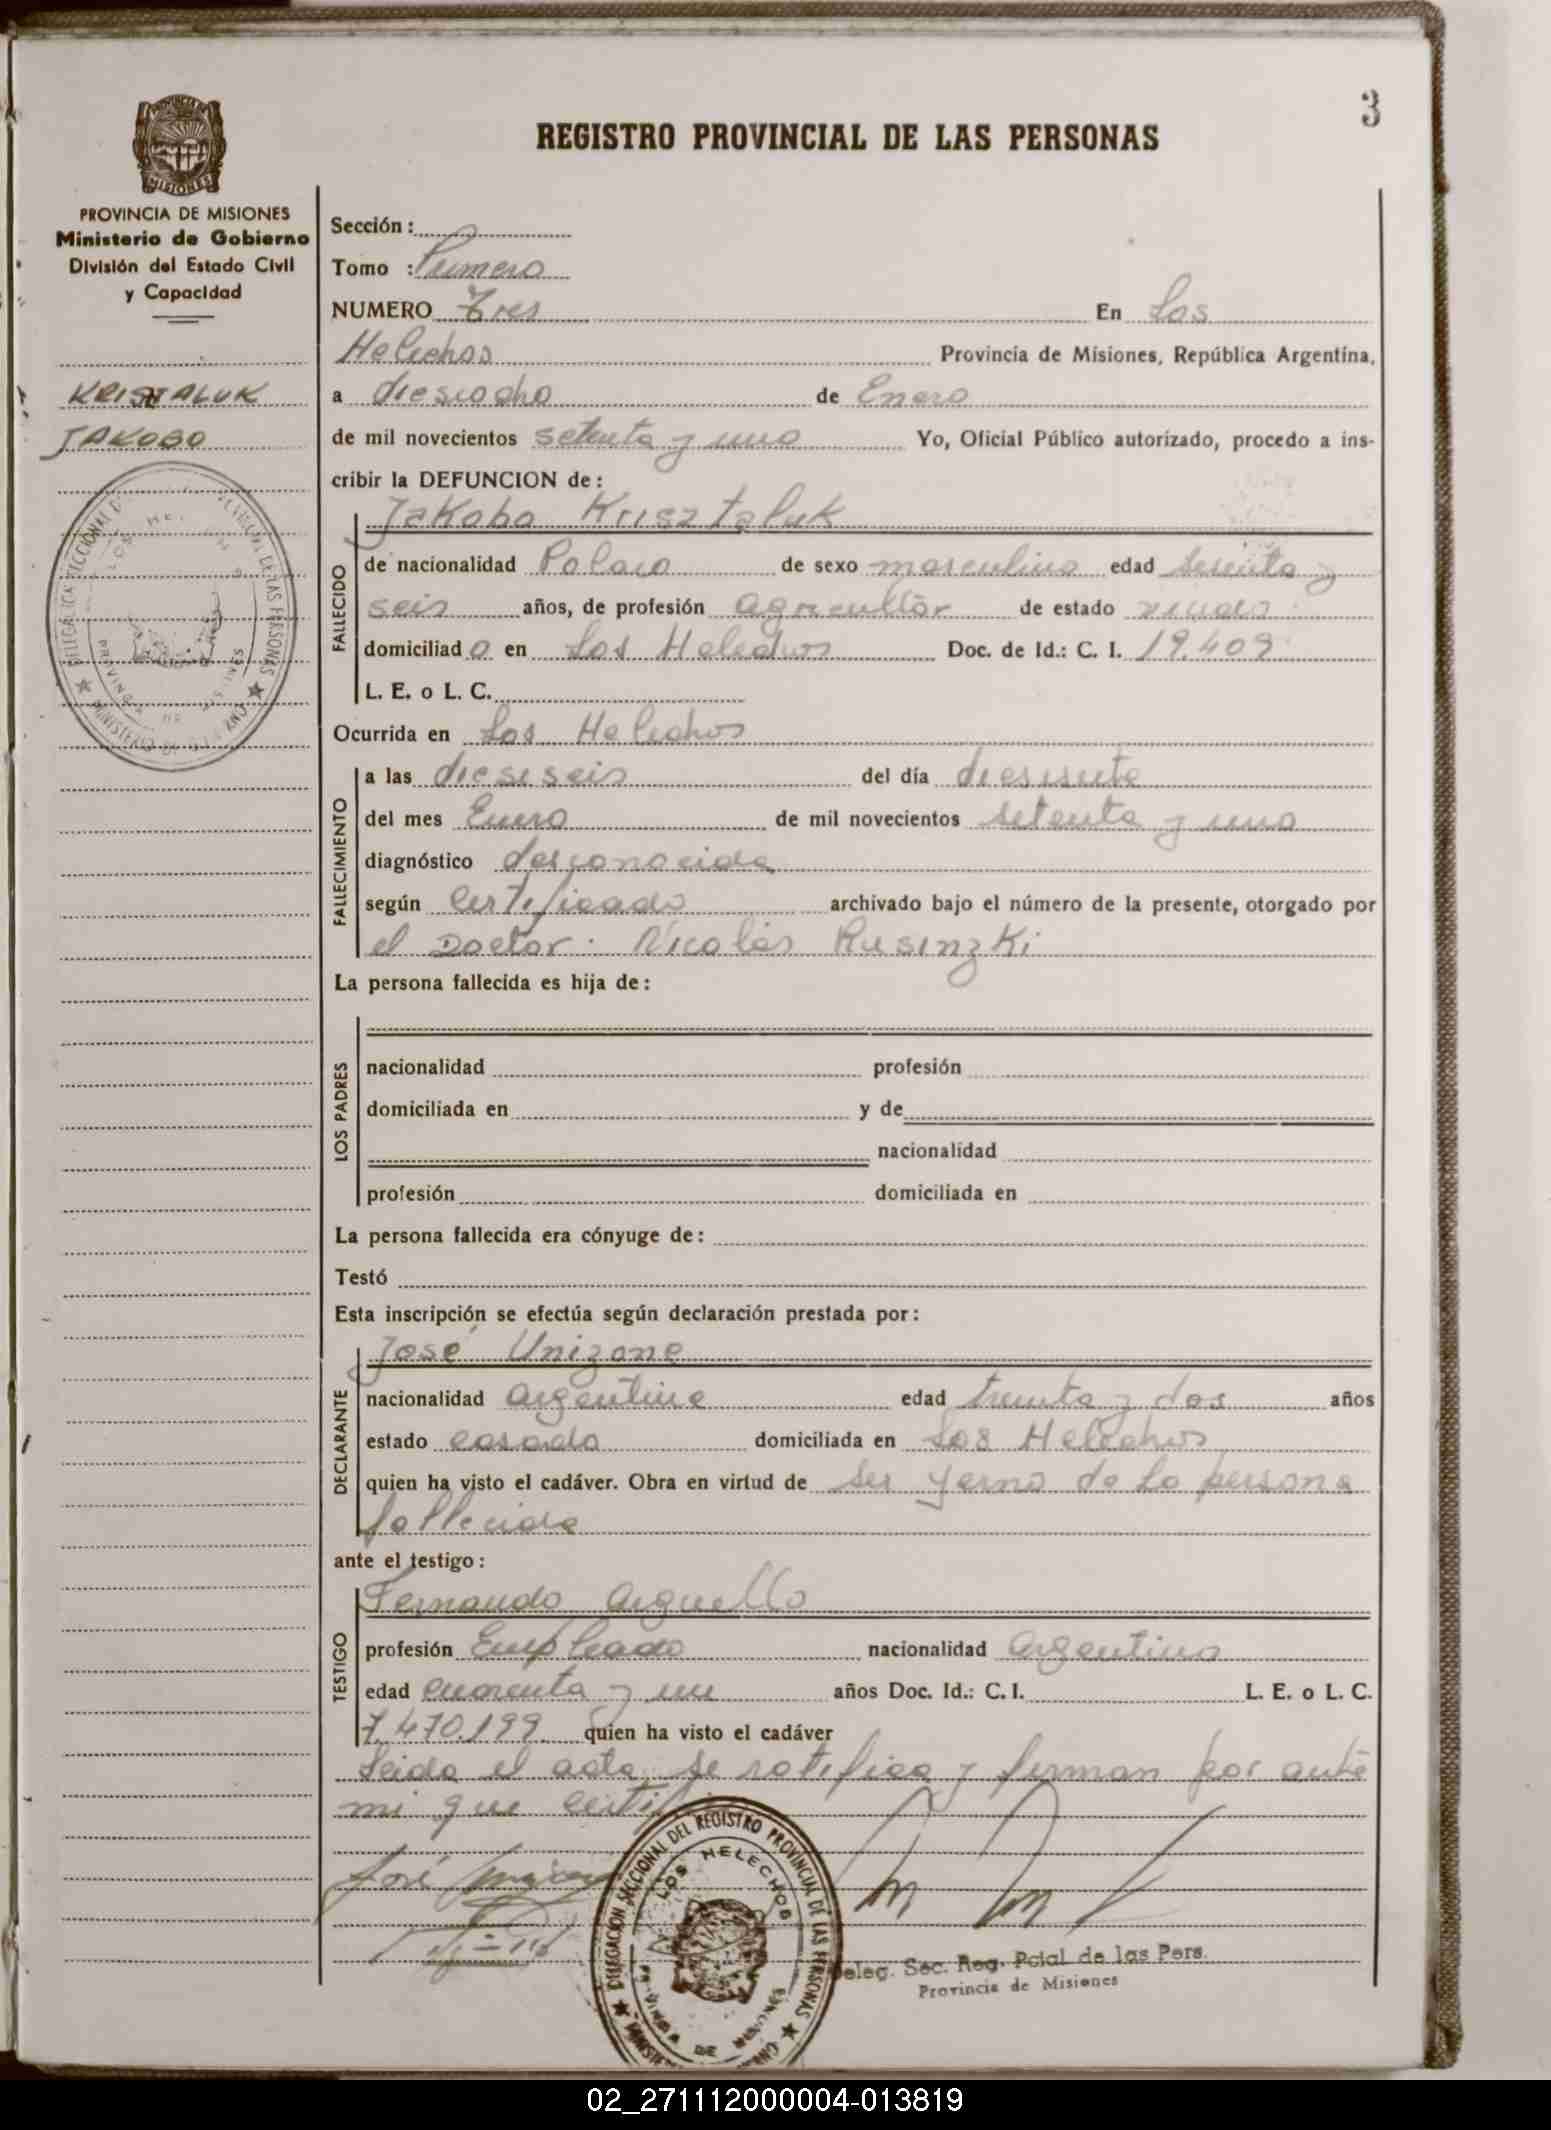 3
REGISTRO PROVINCIAL DE LAS PERSONAS
PROVINCIA DE MISIONES
Ministerio de Gobierno
División del Estado Civil
y Capacidad
KRISTALUK
JAKOBO
Sección:
Tomo : Primero
NUMERO Tres En Los
Helechos Provincia de Misiones, República Argentina,
a diesiocho de Enero
de mil novecientos setenta y uno Yo, Oficial Público autorizado, procedo a ins-
cribir la DEFUNCION de:
Jakobo Krisztaluk
FALLECIDO
de nacionalidad Polaco de sexo masculino edad sesenta y
seis años, de profesión agricultor de estado viudo.
domiciliado en Los Helechos Doc. de Id.: C. I. 19.409
L. E. o L. C.
Ocurrida en Los Helechos
FALLECIMIENTO
a las dieseseis del día diesisiete
del mes Enero de mil novecientos setenta y uno
diagnóstico desconocida
según certificado archivado bajo el número de la presente, otorgado por
el Doctor: Nicolás Rusinzki
La persona fallecida es hija de:
LOS PADRES
nacionalidad profesión
domiciliada en y de
nacionalidad
profesión domiciliada en
La persona fallecida era cónyuge de:
Testó
Esta inscripción se efectúa según declaración prestada por:
José Unizone
DECLARANTE
nacionalidad argentina edad treinta y dos años
estado casado domiciliada en Los Helechos
quien ha visto el cadáver. Obra en virtud de ser yerno de la persona
fallecida
ante el testigo:
Fernando Arguello
TESTIGO
profesión Empleado nacionalidad argentino
edad cuarenta y un años Doc. Id.: C. I. L. E. o L. C.
7.470.199 quien ha visto el cadáver
Leida el acta, se ratifica y firman por ante
mi que
José
DELEGACION SECCIONAL DEL REGISTRO PROVINCIAL DE LAS PERSONAS
LOS HELECHOS
PROVINCIA DE MISIONES
Deleg. Sec. Reg. Pcial de las Pers.
Provincia de Misiones
02_271112000004-013819